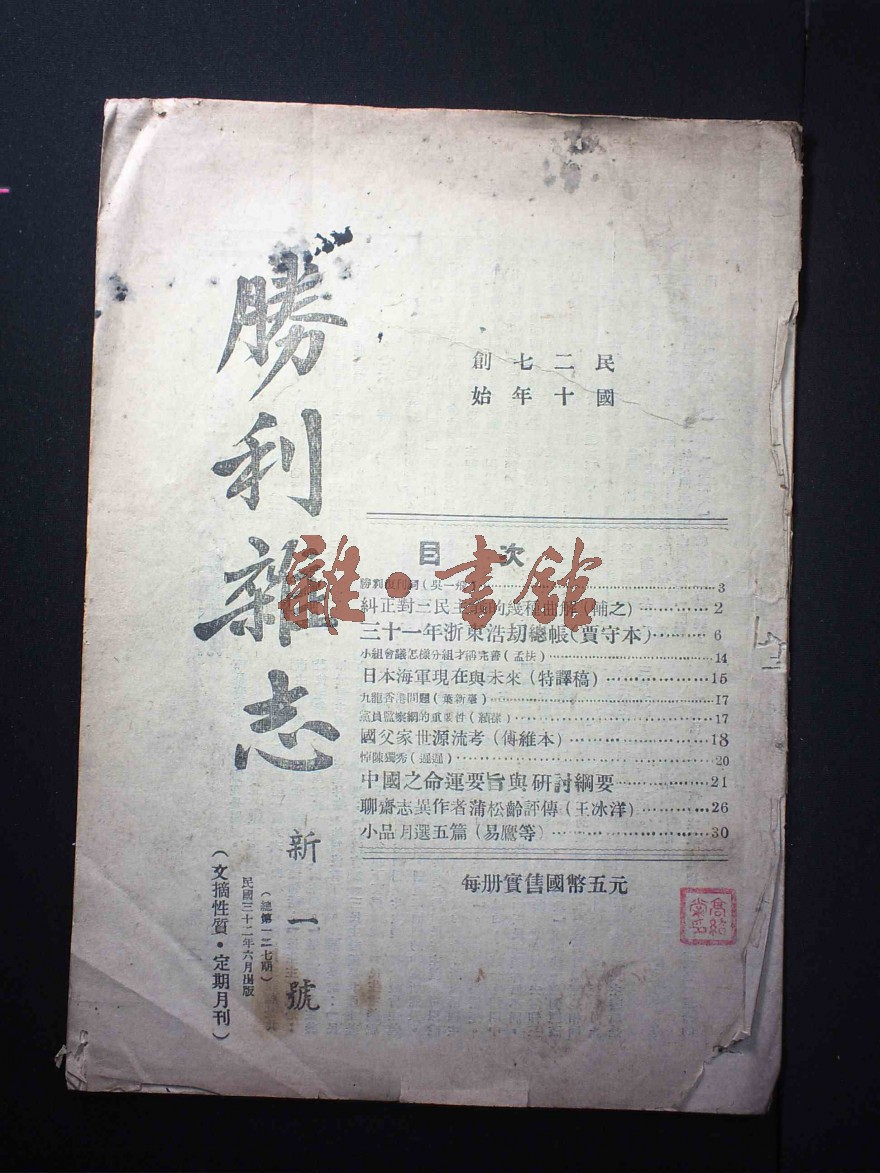 勝利雜志
新一號
(總第一二七期)
民國三十二年六月出版
(文摘性質·定期月刊)
民國二十七年創始
目次
勝利復刊詞(吳一飛)……3
糾正對三民主義的幾種曲解(輔之)……2
三十一年浙東浩劫總帳(賈守本)……6
小組會議怎樣分組才將完善(孟扶)……14
日本海軍現在與未來(特譯稿)……15
九龍香港問題(葉新藩)……17
黨員監察網的重要性……17
國父家世源流考(傅維本)……18
悼陳獨秀(遲遲)……20
中國之命運要旨與研討綱要……21
聊齋志異作者蒲松齡評傳(王冰洋)……26
小品月選五篇(易鷹等)……30
每册實售國幣五元
雜·書館